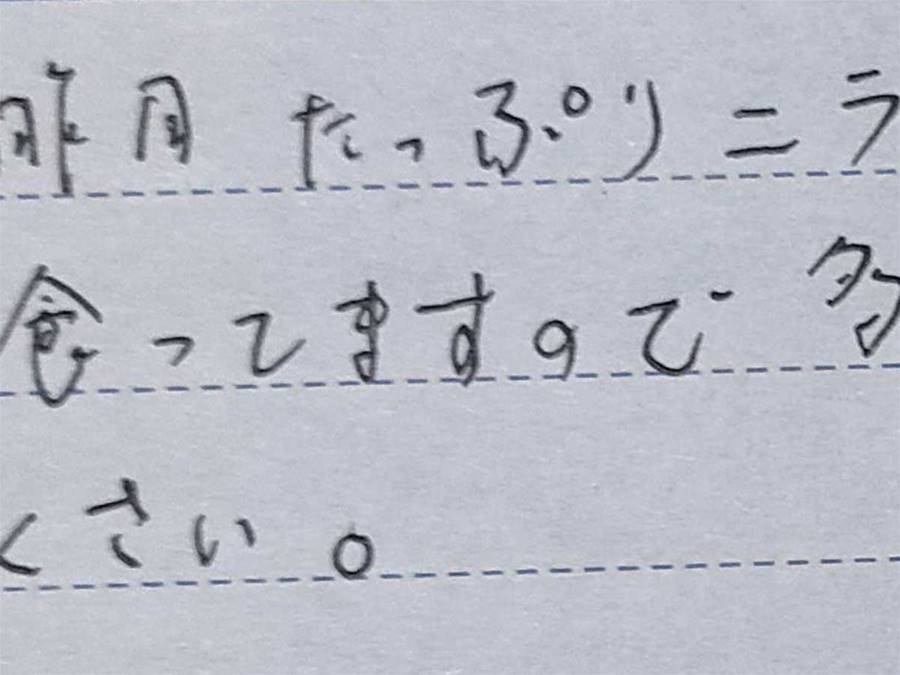 昨日 たっぷり ニラ
食ってますので 多
ください。